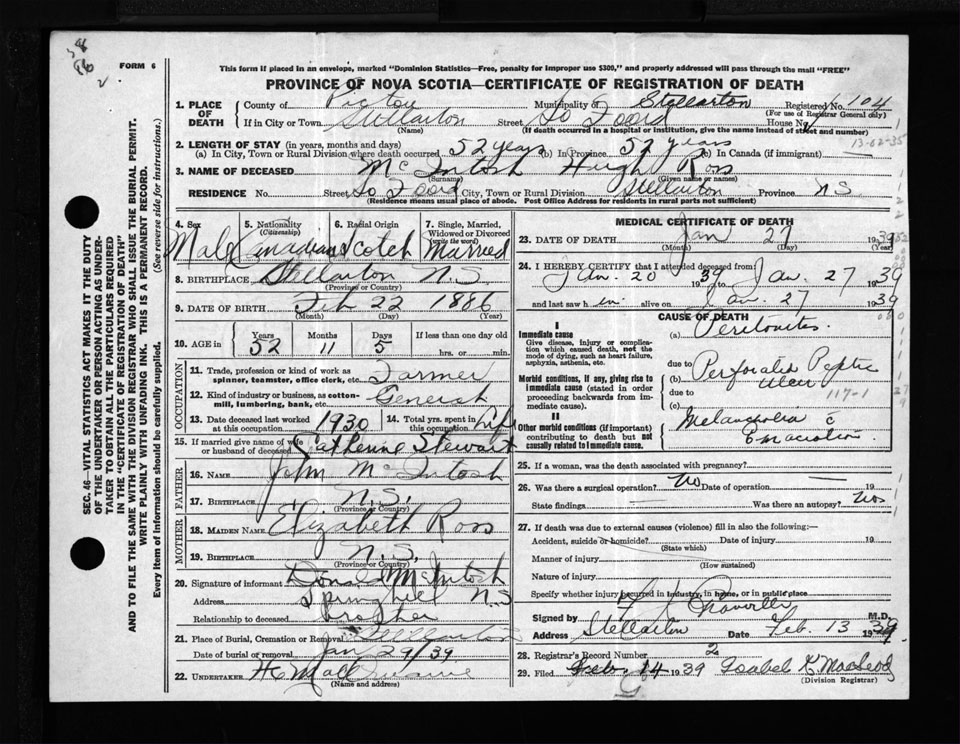 FORM 6
This form if placed in an envelope, marked "Dominion Statistics—Free, penalty for improper use $300," and properly addressed will pass through the mail "FREE"
PROVINCE OF NOVA SCOTIA—CERTIFICATE OF REGISTRATION OF DEATH
SEC. 46—VITAL STATISTICS ACT MAKES IT THE DUTY
OF THE UNDERTAKER OR PERSON ACTING AS UNDER-
TAKER TO OBTAIN ALL THE PARTICULARS REQUIRED
IN THE "CERTIFICATE OF REGISTRATION OF DEATH"
AND TO FILE THE SAME WITH THE DIVISION REGISTRAR WHO SHALL ISSUE THE BURIAL PERMIT.
WRITE PLAINLY WITH UNFADING INK. THIS IS A PERMANENT RECORD.
Every item of information should be carefully supplied. (See reverse side for instructions.)
1. PLACE OF DEATH County of Pictou Municipality of Stellarton Registered No. 104
(For use of Registrar General only)
If in City or Town Stellarton Street So Foord House No.
(Name) (If death occurred in a hospital or institution, give the name instead of street and number)
13-62-35
2. LENGTH OF STAY (in years, months and days)
(a) In City, Town or Rural Division where death occurred 52 years (b) In Province 52 years (c) In Canada (if immigrant)
3. NAME OF DECEASED McIntosh Hugh Ross
(Surname) (Given name or names)
RESIDENCE No. Street So Foord City, Town or Rural Division Stellarton Province N S
(Residence means usual place of abode. Post Office Address for residents in rural parts not sufficient)
4. Sex 5. Nationality (Citizenship) 6. Racial Origin 7. Single, Married, Widowed or Divorced (write the word)
Male Canadian Scotch Married
8. BIRTHPLACE Stellarton N.S.
(Province or Country)
9. DATE OF BIRTH Feb 22 1886
(Month) (Day) (Year)
10. AGE in Years Months Days If less than one day old
52 11 5 hrs. or min.
OCCUPATION
11. Trade, profession or kind of work as spinner, teamster, office clerk, etc. Farmer
12. Kind of industry or business, as cotton-mill, lumbering, bank, etc. General
13. Date deceased last worked at this occupation 1930 14. Total yrs. spent in this occupation Life
15. If married give name of wife or husband of deceased Catherine Stewart
FATHER
16. NAME John McIntosh
17. BIRTHPLACE N.S.
(Province or Country)
MOTHER
18. MAIDEN NAME Elizabeth Ross
19. BIRTHPLACE N.S.
(Province or Country)
20. Signature of informant Donald McIntosh
Address Springhill N.S
Relationship to deceased brother
21. Place of Burial, Cremation or Removal Stellarton
Date of burial or removal Jan 29/39
22. UNDERTAKER
(Name and address)
MEDICAL CERTIFICATE OF DEATH
23. DATE OF DEATH Jan 27 1939
(Month) (Day)
24. I HEREBY CERTIFY that I attended deceased from:
Jan. 20 1939 to Jan. 27 1939
and last saw h im alive on Jan. 27 1939
CAUSE OF DEATH
I
Immediate cause
Give disease, injury or complication which caused death, not the mode of dying, such as heart failure, asphyxia, asthenia, etc.
(a) Peritonitis.
due to
Morbid conditions, if any, giving rise to immediate cause (stated in order proceeding backwards from immediate cause).
(b) Perforated Peptic Ulcer
due to 117-1
(c)
II
Other morbid conditions (if important) contributing to death but not causally related to immediate cause.
Melancholia c Emaciation
25. If a woman, was the death associated with pregnancy?
26. Was there a surgical operation? No Date of operation — 19
State findings — Was there an autopsy? No
27. If death was due to external causes (violence) fill in also the following:—
Accident, suicide or homicide? Date of injury 19
(State which)
Manner of injury
(How sustained)
Nature of injury
Specify whether injury occurred in industry, in home, or in public place
Signed by M.D.
Address Stellarton Date Feb. 13 1939
28. Registrar's Record Number 2
29. Filed Feb 14 1939 Isabel K MacLeod
(Division Registrar)